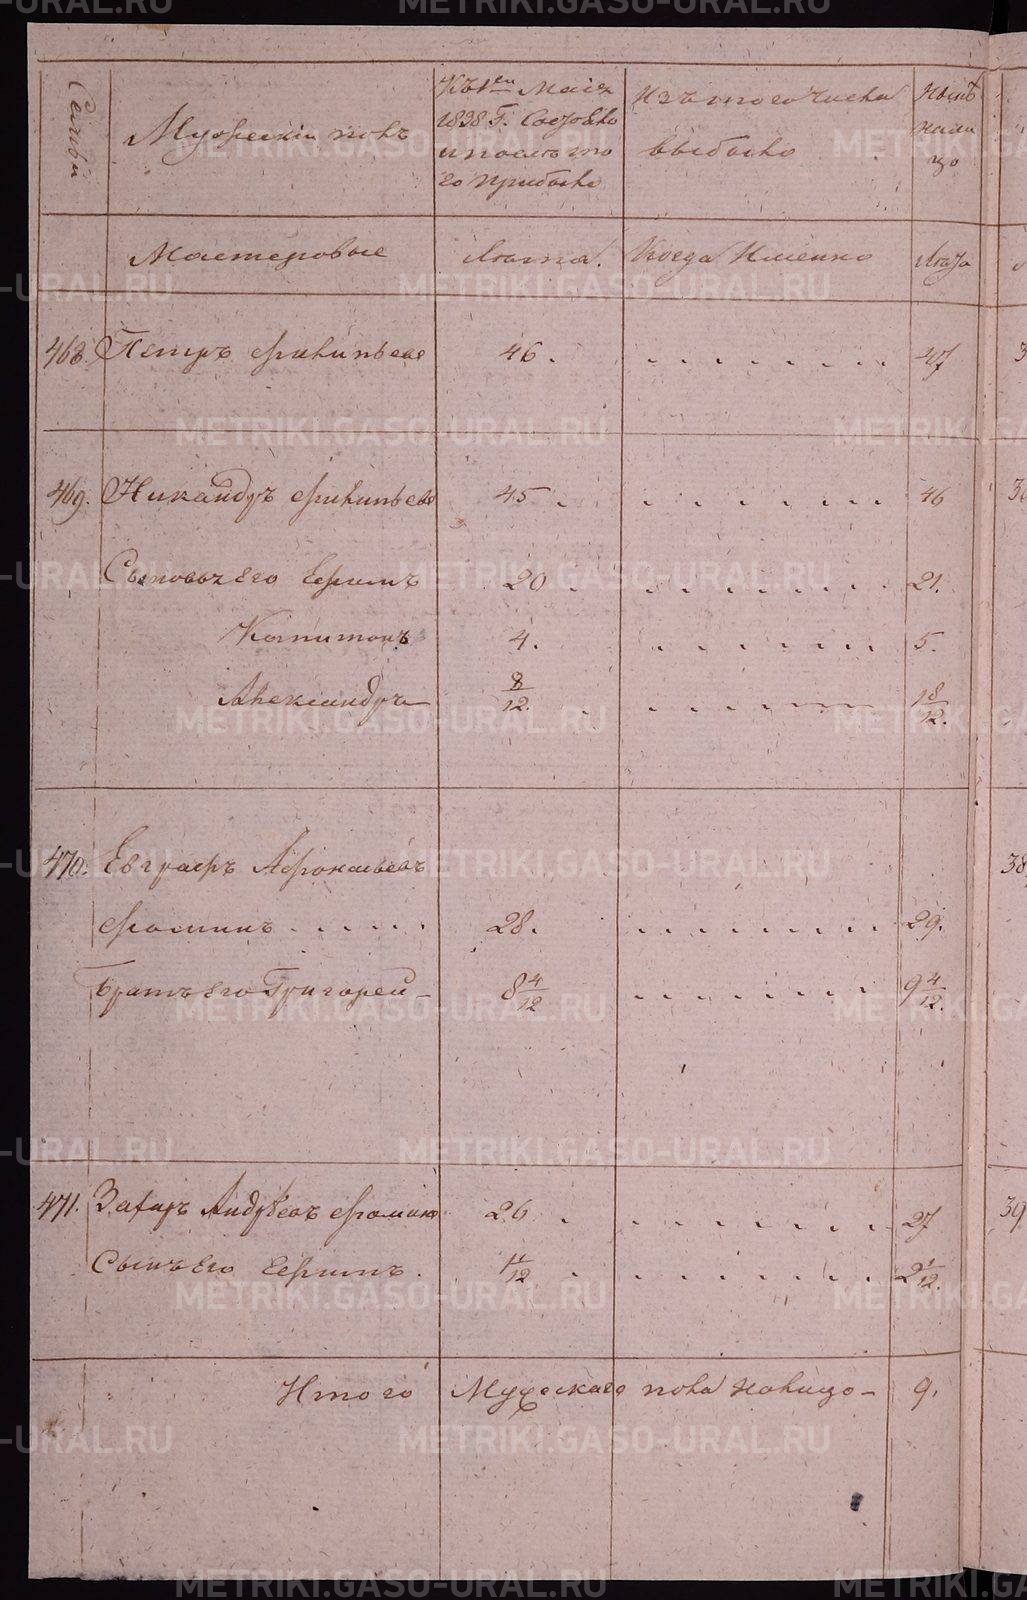 Семьи
Мужескій полъ
Къ 1е Маія
1838 г. Состояло
и после то
го прибыло
Изъ того числа
выбыло
Нынѣ
нали
цо
Мастеровые
Лѣта.
Когда Именно
Лѣта
468. Петръ Филипьевъ 46. 47
469. Никандръ Филипьевъ 45 46
Сыновья Его Ефимъ 20 21.
Капитонъ 4. 5.
Александръ 8/12. 1 8/12.
470. Евграфъ Афонасьевъ
Фоминъ 28. 29.
Братъ Его Григорей 8 4/12 9 4/12.
471. Захаръ Андрѣевъ Фоминъ 26 27
Сынъ Его Ефимъ. 11/12 2 1/12.
Итого Мужескаго пола налицо 9.
METRIKI.GASO-URAL.RU